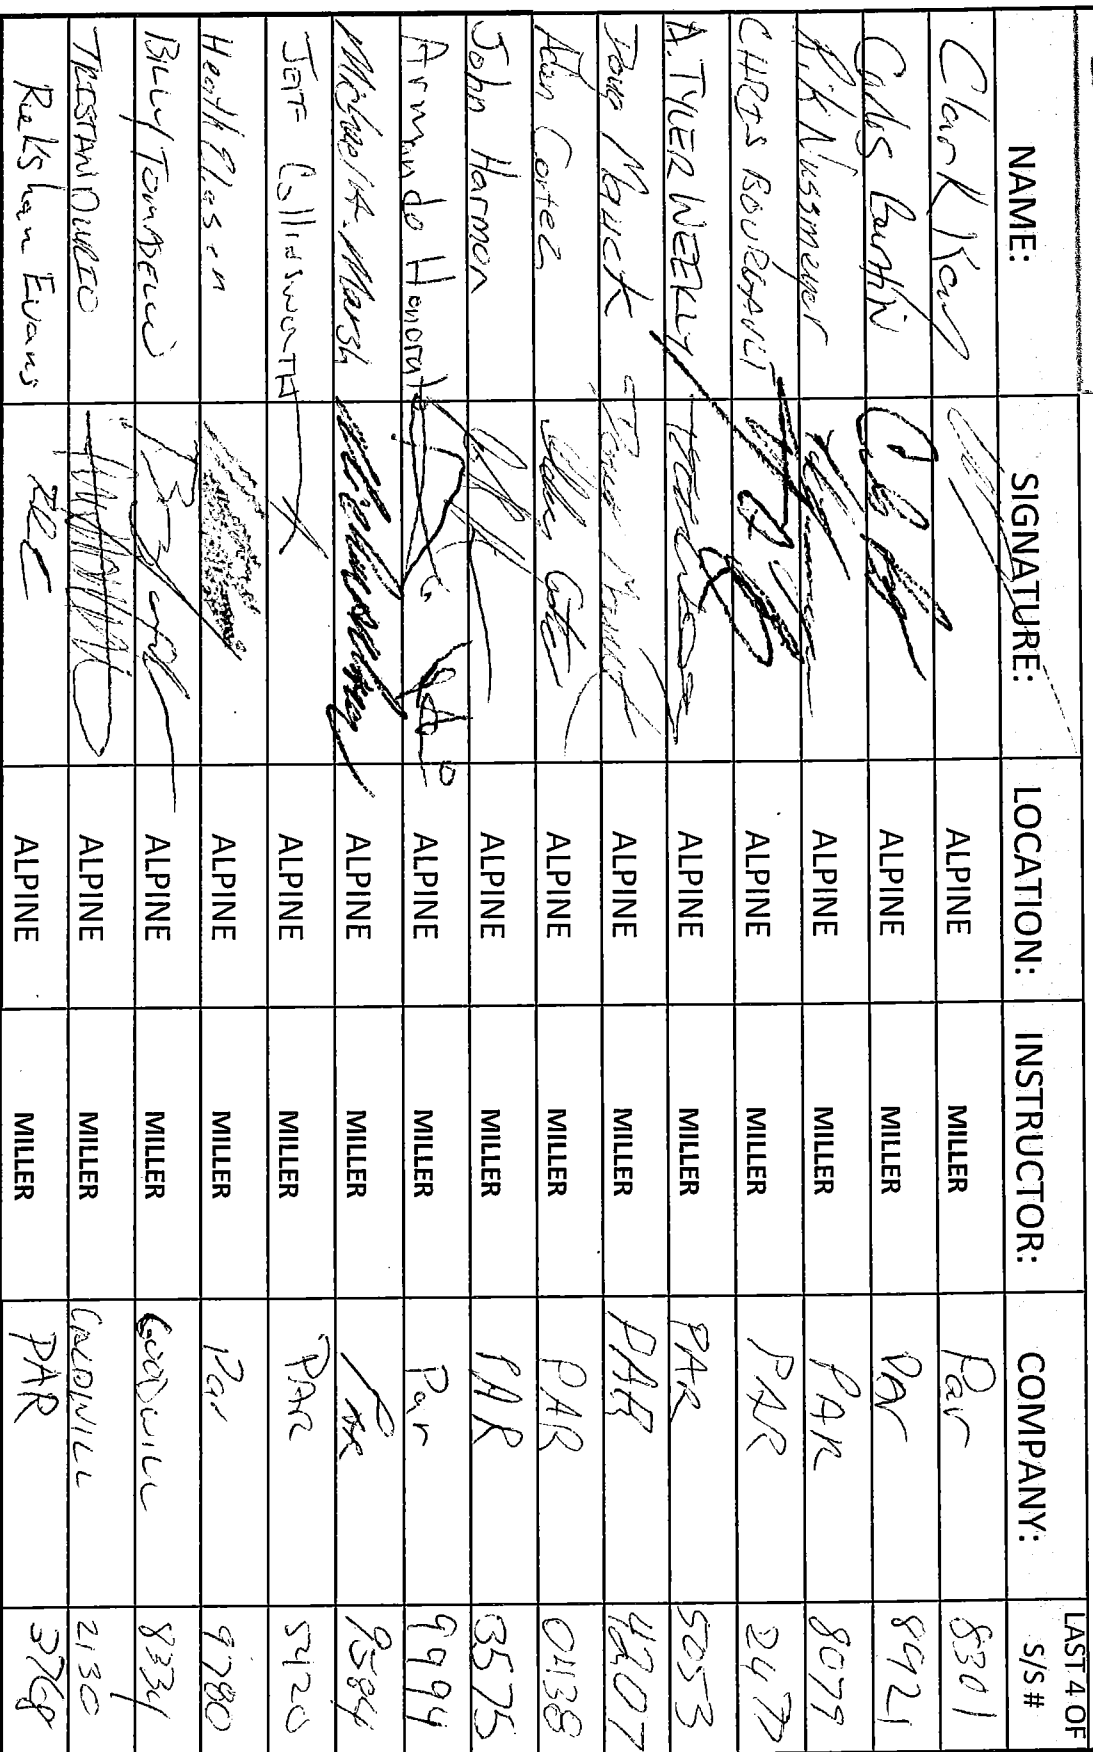 NAME: SIGNATURE: LOCATION: INSTRUCTOR: COMPANY: LAST 4 OF S/S #
Clark ALPINE MILLER Par 8301
Carlos ALPINE MILLER Par 8921
Rik Nussmeyer ALPINE MILLER PAR 8079
CHRIS BOURGAULT ALPINE MILLER PAR 2477
A. TYLER WEEKLY ALPINE MILLER PAR 5053
Doug Mauck ALPINE MILLER PAR 4207
Adan Cortez ALPINE MILLER PAR 0438
John Harmon ALPINE MILLER PAR 3575
Armando Honorato ALPINE MILLER Par 9994
Michael A. Marsh ALPINE MILLER PAR 9584
JEFF CollinswortH ALPINE MILLER PAR 5420
Heath ALPINE MILLER Par 9780
BILLY ALPINE MILLER GOODWILL 8334
TRISTAN ALPINE MILLER 2130
Evans REE ALPINE MILLER PAR 3768